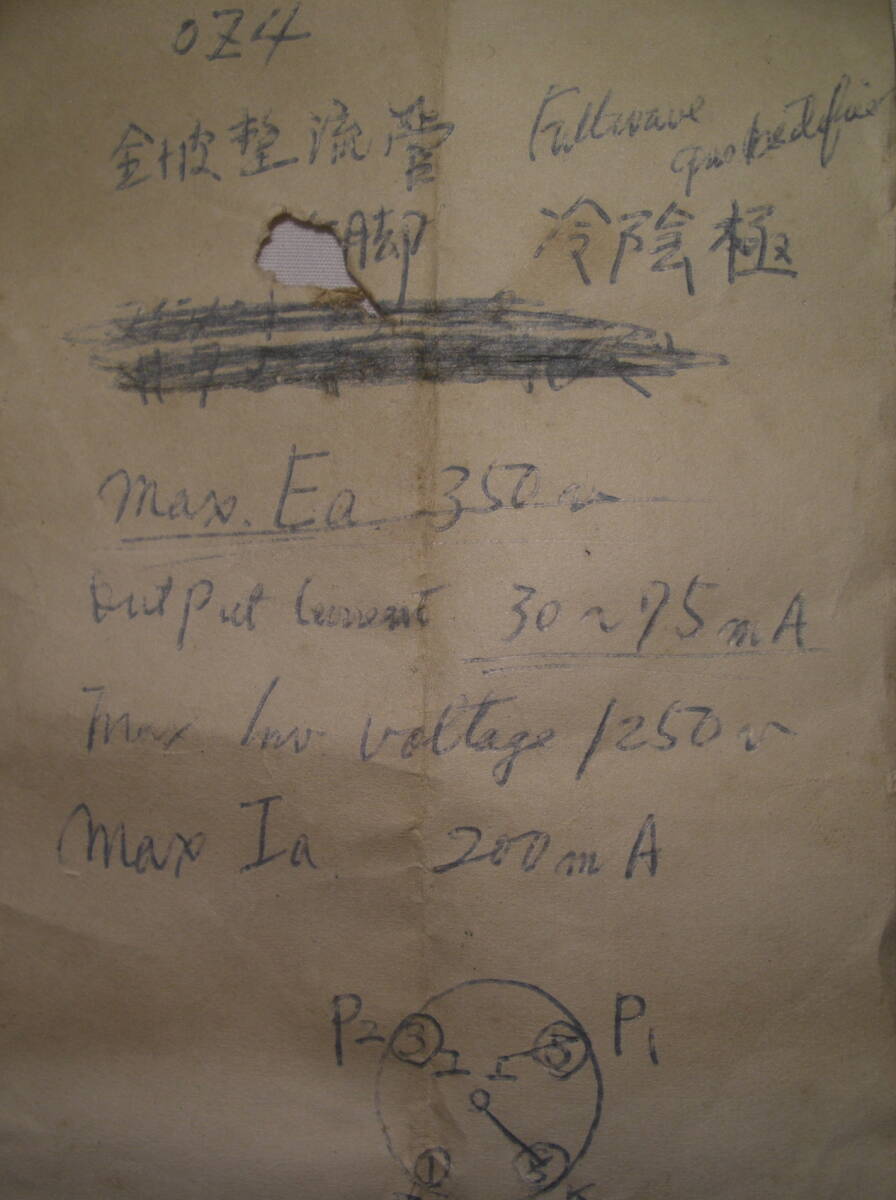 OZ4
金坡整流管 Fullwave
gas Rectifier
脚 冷陰極
Max. Ea 350 v
Output Current 30~75mA
Max Inv voltage 1250v
Max Ia. 200mA
P2 ③ ⑤ P1
① ⑤
K